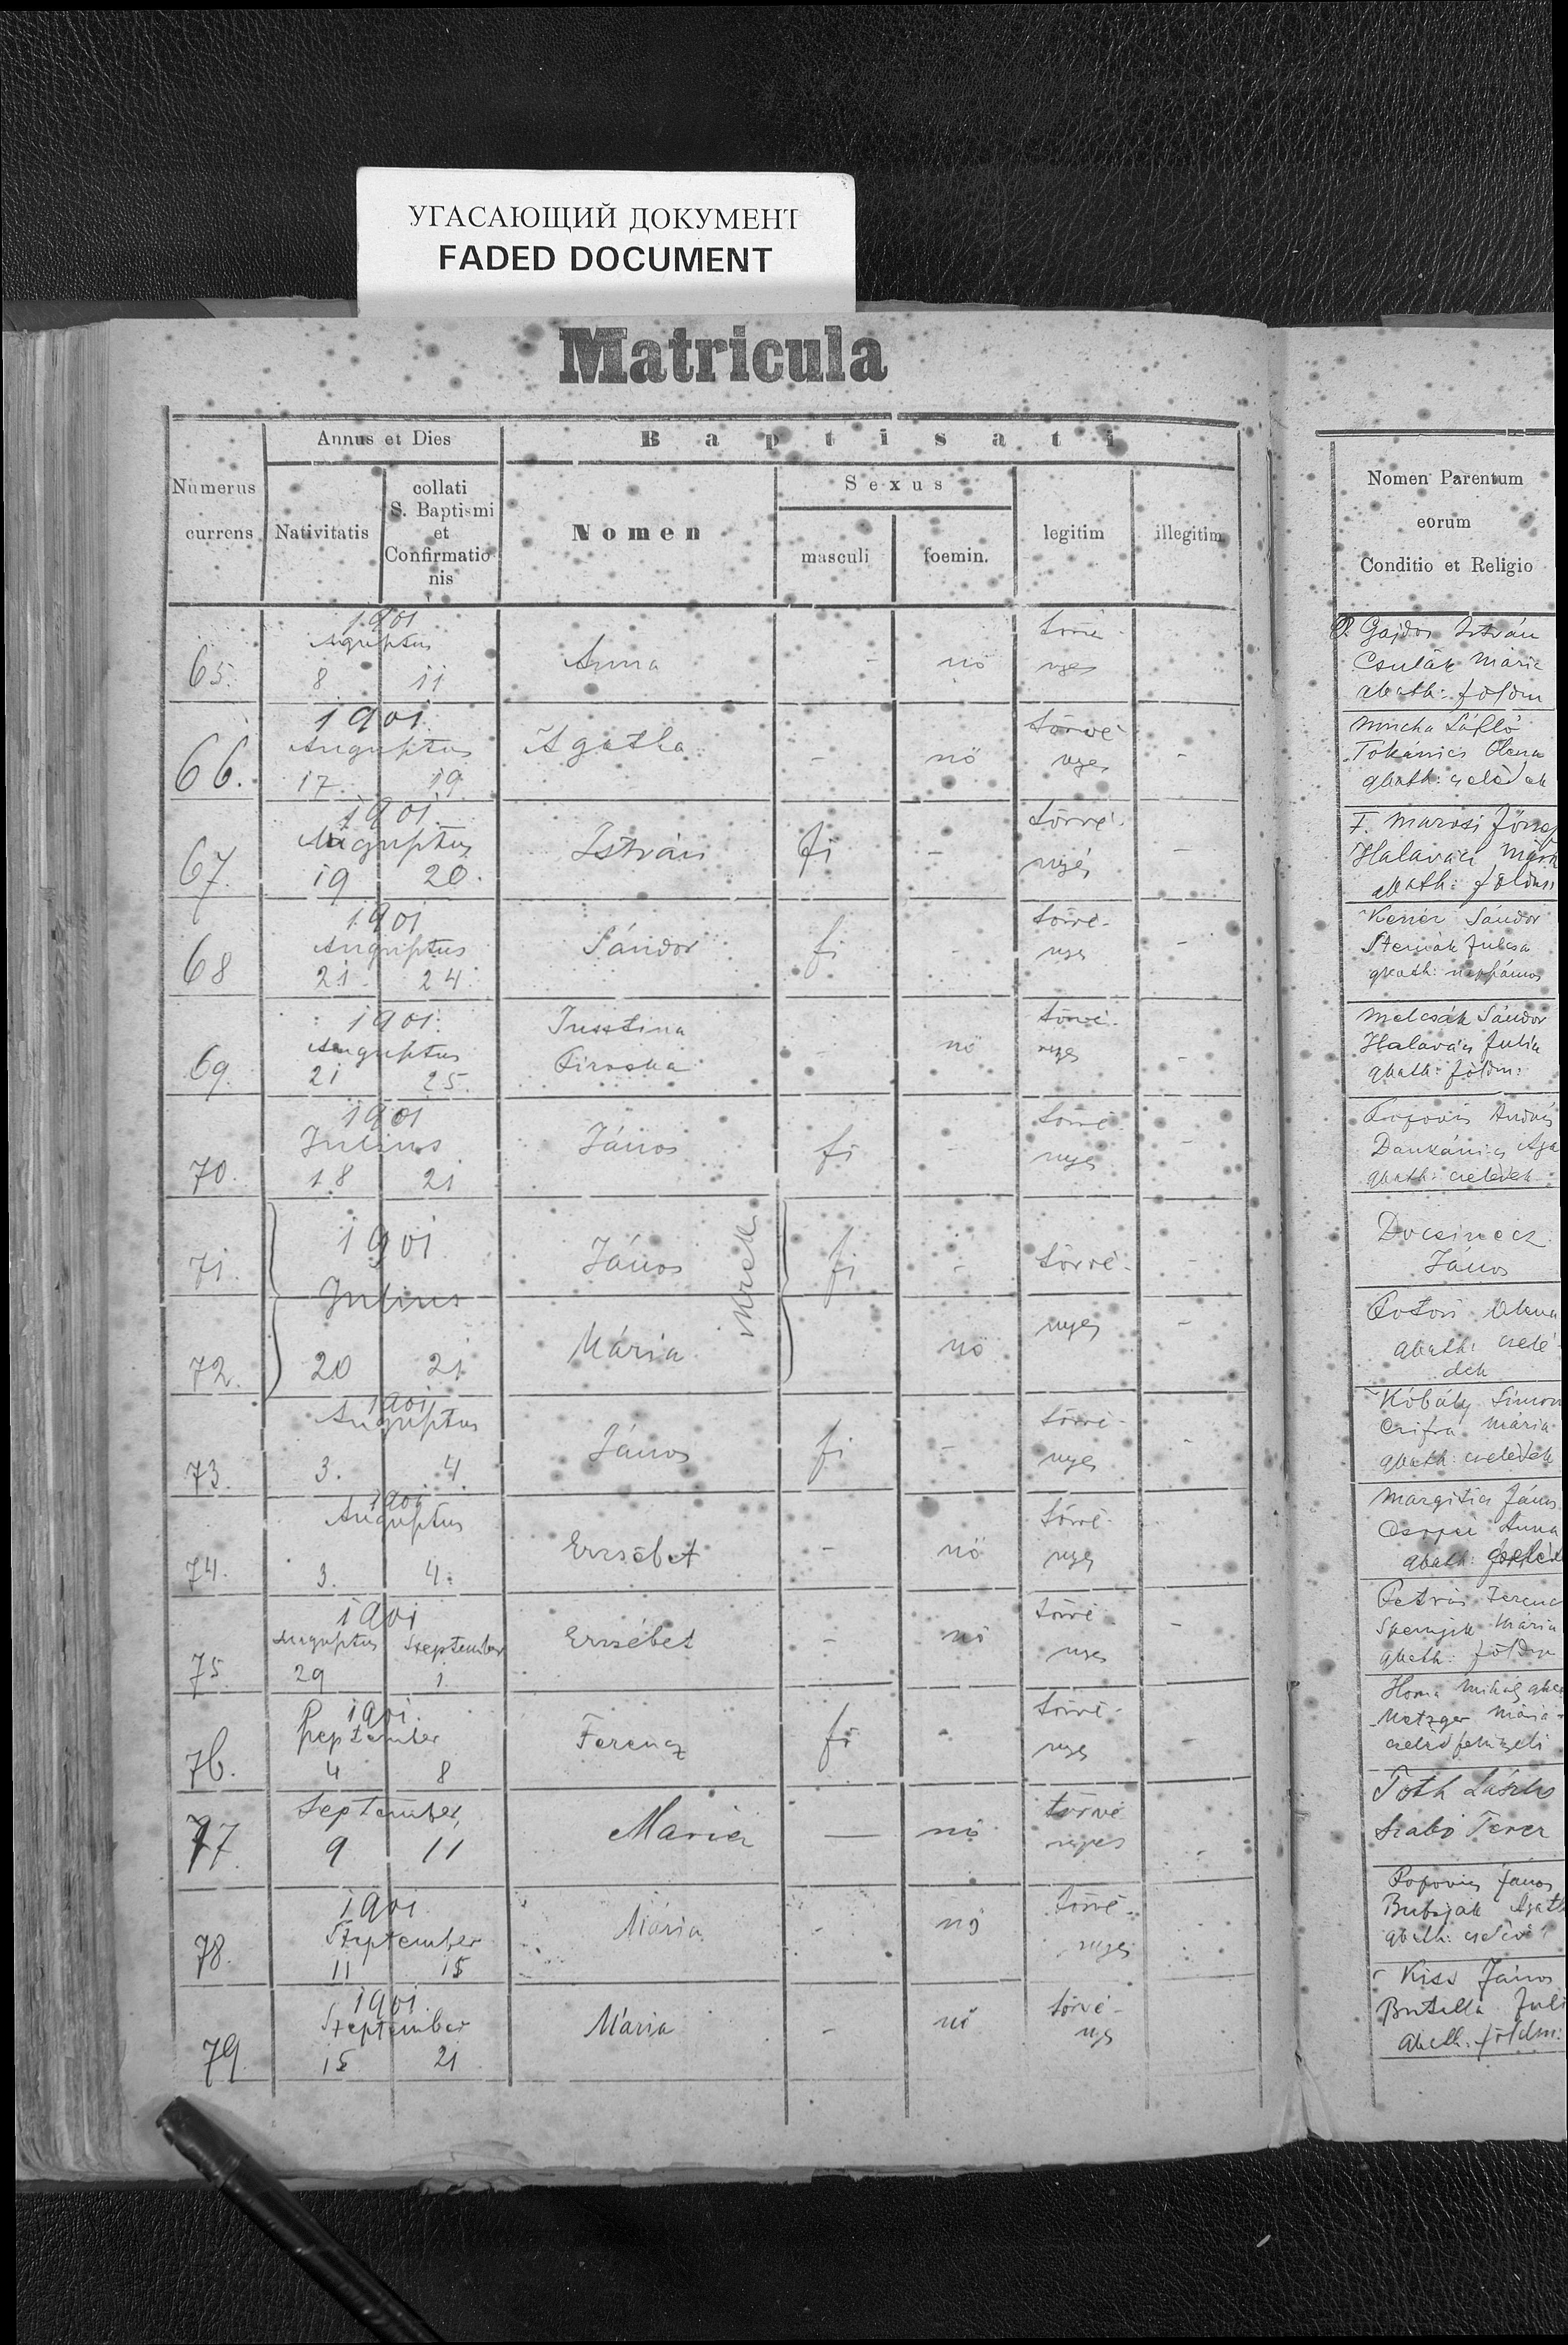 УГАСАЮЩИЙ ДОКУМЕНТ
FADED DOCUMENT
Matricula
Numerus
currens
Annus et Dies
Nativitatis
collati
S. Baptismi
et
Confirmatio
nis
Baptisati
Nomen
Sexus
masculi
foemin.
legitim
illegitim
Nomen Parentum
eorum
Conditio et Religio
65.
1901
Auguſtus
8 11
Anna
-
nö
törvé-
nyes
Gajdos István
Csulák Mária
földm
66.
1901.
Auguſtus
17. 19.
Agatha
-
nö
törvé-
nyes
-
Tokánics Olena
cselédek
67.
1901.
Auguſtus
19 20.
István
fi
-
törvé-
nyes
-
F. Marosi
Halavács Mári
68
1901
Auguſtus
21. 24.
Sándor
fi
-
törvé-
nyes
-
Sándor
Julcsa
gkath: napſámos
69.
1901.
Auguſtus
21 25.
Jusztina
Piroska
-
nö
törvé-
nyes
-
Melcsák Sándor
Halavács Julia
gkath: földm:
70.
1901
Julius
18 21
János
fi
-
törvé-
nyes
-
Popovics András
gkath: cselédek
71.
72.
1901
Julius
20 21
János
Mária
ikrek
fi
-
nö
törvé-
nyes
-
-
Docsinecz
János
Olena
gkath: cselé-
dek
73.
1901
Auguſtus
3. 4.
János
fi
-
törvé-
nyes
-
Kóbály Simon
Czifra Mária
gkath: cselédek
74.
1901
Auguſtus
3. 4.
Erzsébet
-
nö
törvé-
nyes
Margitics János
Anna
gkath:
75.
1901
Auguſtus Szeptember
29 1.
Erzsébet
-
nö
törvé-
nyes
-
Ferenc
Mária
gkath: földm
76.
1901.
ſzeptember
4 8
Ferencz
fi
-
törvé-
nyes
-
Homa Mihály
Metzger Mária
77.
September,
9 11
Maria
—
nö
törvé
nyes
-
Toth László
Szabó Terez
78.
1901.
Szeptember
11 15
Mária
-
nö
törvé-
nyes
Popovics János
gkath:
79.
1901.
Szeptember
15 21
Mária
-
nö
törvé-
nyes
Kiss János
Butella Juli
gkath: földm: